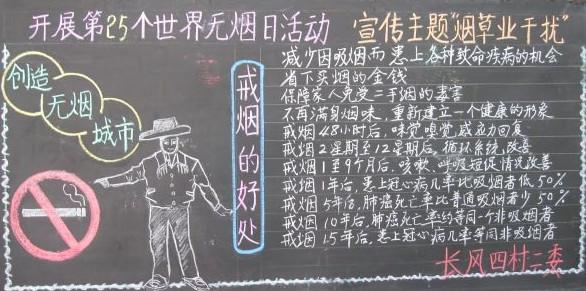 开展第25个世界无烟日活动 宣传主题"烟草业干扰"
创造
无烟
城市
戒烟的好处
减少因吸烟而患上各种致命疾病的机会
省下买烟的金钱
保障家人免受二手烟的毒害
不再满身烟味,重新建立一个健康的形象
戒烟48小时后,味觉嗅觉感应力回复
戒烟2星期至12星期后,循环系统改善
戒烟1至9个月后,咳嗽、呼吸短促情况改善
戒烟1年后,患上冠心病几率比吸烟者低50%
戒烟5年后,肺癌死亡率比普通吸烟者少50%
戒烟10年后,肺癌死亡率约等同一个非吸烟者
戒烟15年后,患上冠心病几率等同非吸烟者
长风四村二委